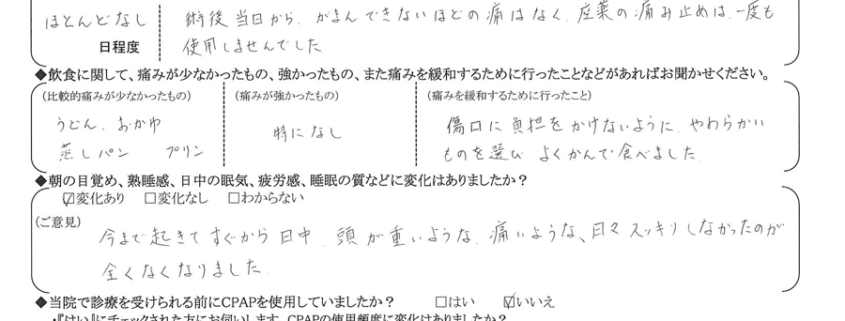 ほとんどなし
術後当日から、がまんできないほどの痛はなく、座薬の痛み止めは、一度も
日程度
使用しませんでした
◆飲食に関して、痛みが少なかったもの、強かったもの、また痛みを緩和するために行ったことなどがあればお聞かせください。
(比較的痛みが少なかったもの)
(痛みが強かったもの)
(痛みを緩和するために行ったこと)
うどん、おかゆ
蒸しパン プリン
特になし
傷口に負担をかけないように、やわらかい
ものを選び よくかんで食べました
◆朝の目覚め、熟睡感、日中の眠気、疲労感、睡眠の質などに変化はありましたか？
☑変化あり □変化なし □わからない
(ご意見)
今まで起きてすぐから日中、頭が重いような、痛いような、日々スッキリしなかったのが
全くなくなりました。
◆当院で診療を受けられる前にCPAPを使用していましたか？ □はい ☑いいえ
・『はい』にチェックされた方にお伺いします。CPAPの使用頻度に変化はありましたか？